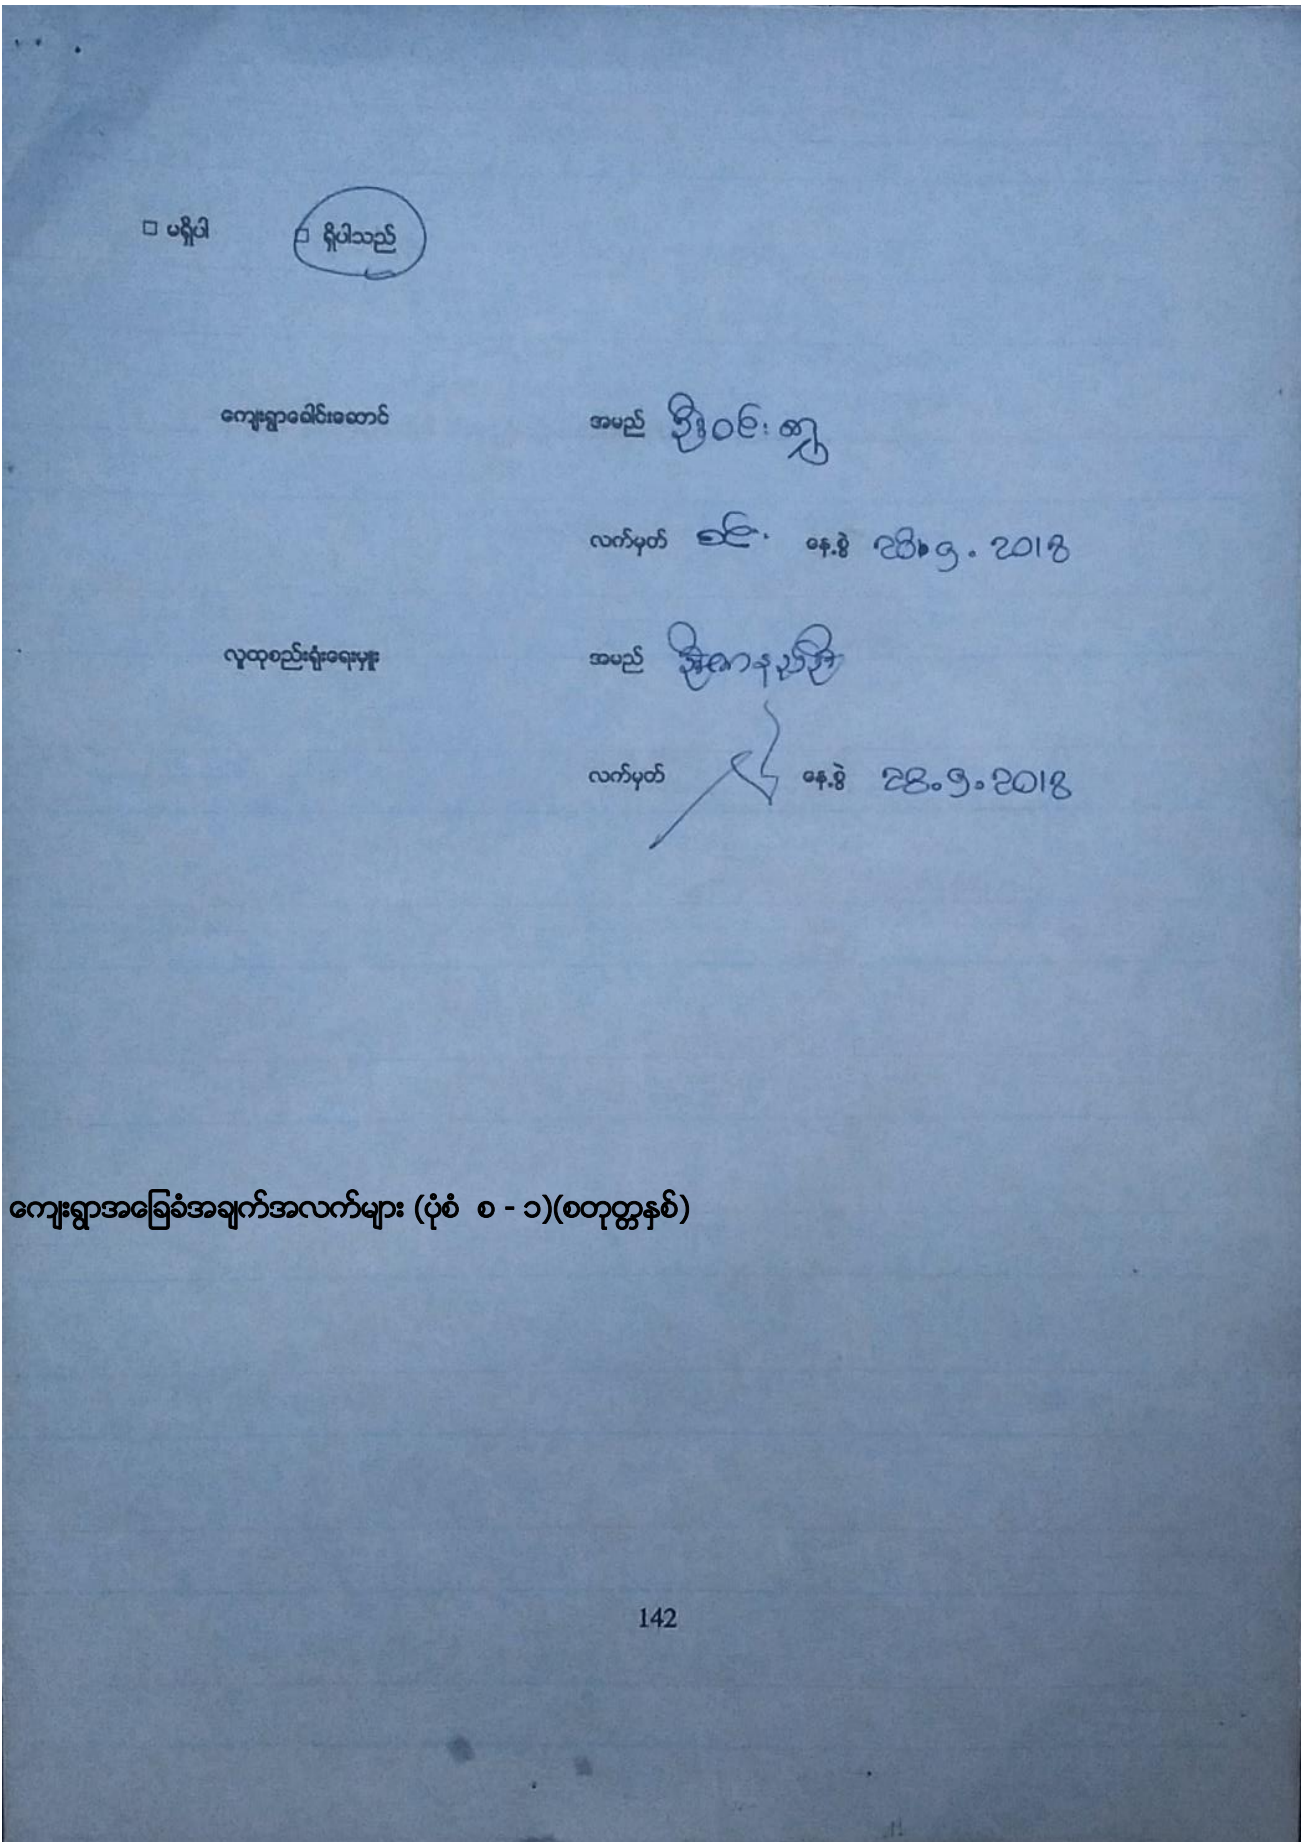 □ မရှိပါ □ ရှိပါသည်
ကျေးရွာခေါင်းဆောင် အမည် ဦးဝင်း
လက်မှတ် နေ့စွဲ 28.9.2018
လူထုစည်းရုံးရေးမှူး အမည်
လက်မှတ် နေ့စွဲ 28.9.2018
ကျေးရွာအခြေခံအချက်အလက်များ (ပုံစံ စ - ၁)(စတုတ္တနှစ်)
142